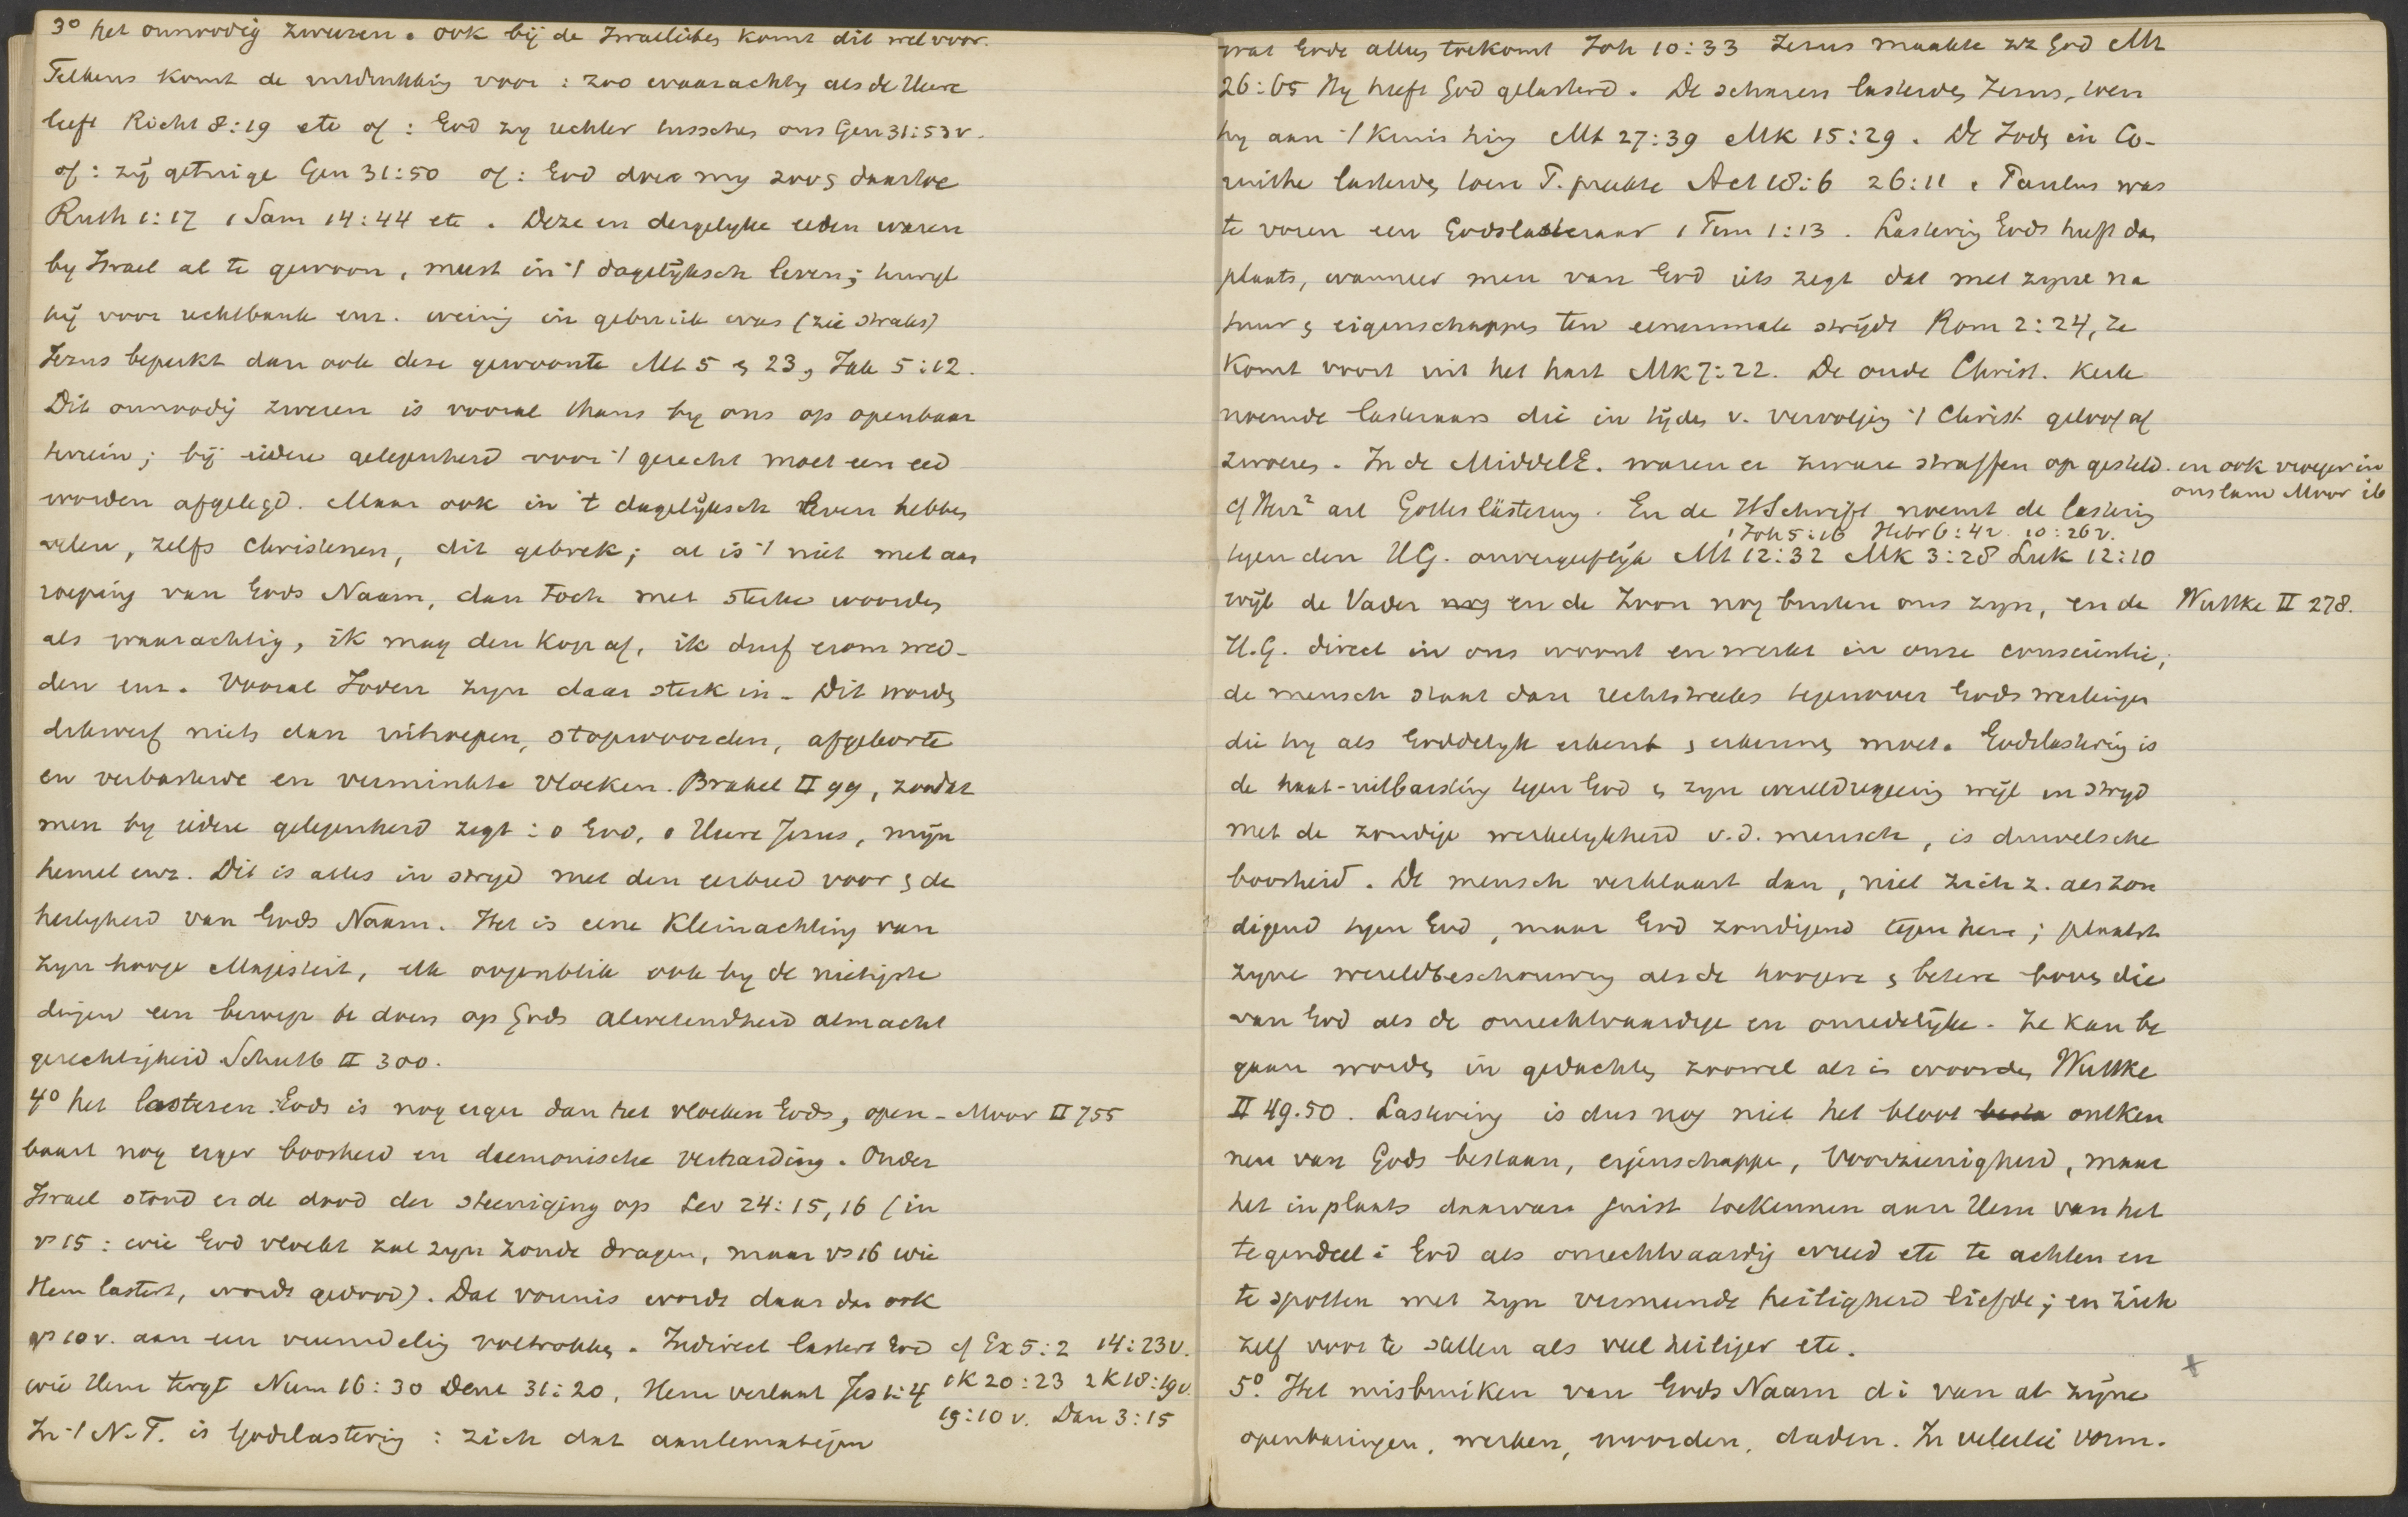 3° het onnoodig zweren. ook bij de Israelieten komt dit wel voor.
Telkens komt de uitdrukking voor: zoo waarachtig als de Heere
leeft Richt 8:19 etc of: God zy rechter tusschen ons Gen 31:53v.
of: zij getuige Gen 31:50 of: God doe my zoo & daartoe
Ruth 1:17 1 Sam 14:44 etc. Deze en dergelyke eeden waren
by Israel al te gewoon, meest in 't dagelijksch leven; terwyl
hij voor rechtbank enz. weinig in gebruik was (zie straks)
Jezus beperkt dan ook deze gewoonte Mt 5 & 23, Jak 5:12.
Dit onnoodig zweren is vooral thans by ons op openbaar
terrein; bij iedere gelegenheid voor 't gerecht moet een eed
worden afgelegd. Maar ook in 't dagelijksch leven hebben
velen, zelfs Christenen, dit gebrek; al is 't niet met aan
roeping van Gods Naam, dan toch met sterke woorden
als waarachtig, ik mag den kop af, ik durf erom wed-
den enz. Vooral Joden zyn daar sterk in. Dit worden
dikwerf niets dan uitroepen, stopwoorden, afgekorte
en verbasterde en verminkte vloeken. Brakel II 99, zoodat
men by iedere gelegenheid zegt: o God, o Heere Jezus, mijn
hemel enz. Dit is alles in stryd met den eerbied voor & de
heerlykheid van Gods Naam. Het is eene kleinachting van
zyn hooge Majesteit, elk oogenblik ook by de nietigste
dingen een beroep te doen op Gods alwetendheid almacht
gerechtigheid Schultz II 300.
4° het lasteren Gods is nog erger dan het vloeken Gods, open- Moor II 755
baart nog erger boosheid en daemonische verharding. Onder
Israel stond er de dood der steeniging op Lev 24:15,16 (in
vs 15: wie God vloekt zal zyn zonde dragen, maar vs 16 wie
Hem lastert, wordt gedood). Dat vonnis wordt daar dan ook
vs 10v. aan een vreemdeling voltrokken. Indirect lastert God cf Ex 5:2 14:23v.
wie Hem tergt Num 16:30 Deut 31:20, Hem verlaat Jes 1:4 1K 20:23 2K 18:19v.
19:10v. Dan 3:15
In 't N.T. is Godslastering: zich dat aantematigen
wat Gode alleen toekomt Joh 10:33 Jezus maakte zz God Mt
26:65 Hy heeft God gelasterd. De scharen lasterden Jezus, toen
hy aan 't kruis hing Mt 27:39 Mk 15:29. De Joden in Co-
rinthe lasterden toen P. preekte Act 18:6 26:11. Paulus was
te voren een Godslasteraar 1 Tim 1:13. Lastering Gods heeft dan
plaats, wanneer men van God iets zegt dat met zyne na
tuur & eigenschappen ten eenenmale strijdt Rom 2:24, Ze
komt voort uit het hart Mk 7:22. De oude Christ. Kerk
noemde lasteraars die in tijden v. vervolging 't Christ. geloof af
zwoeren. In de MiddelE. waren er zware straffen op gesteld. en ook vroeger in
ons land Moor ib
cf Herz² art Gotteslästerung. En de H Schrift noemt de lastering
1 Joh 5:16 Hebr 6:4v. 10:26v.
tegen den H.G. onvergeeflijk Mt 12:32 Mk 3:28 Luk 12:10
wijl de Vader en de Zoon nog buiten ons zyn, en de Wuttke II 278.
H.G. direct in ons woont en werkt in onze consciëntie;
de mensch staat dan rechtstreeks tegenover Gods werkingen
die hy als Goddelyk erkent & erkennen moet. Godslastering is
de haat-uitbarsting tegen God & zyn wereldregeering wijl in stryd
met de zondige werkelykheid v.d. mensch, is duivelsche
boosheid. De mensch verklaart dan, niet zich z. als zon
digend tegen God, maar God zondigend tegen hem; plaatst
zyne wereldbeschouwing als de hoogere & betere boven die
van God als de onrechtvaardige en onredelijke. Ze kan be
gaan worden in gedachten zoowel als in woorden Wuttke
II 49.50. Lastering is dus nog niet het bloot ontken
nen van Gods bestaan, eigenschappen, Voorzienigheid, maar
het in plaats daarvan juist toekennen aan Hem van het
tegendeel: God als onrechtvaardig wreed etc te achten en
te spotten met zyn vermeende heiligheid liefde; en zich
zelf voor te stellen als veel heiliger etc.
5° Het misbruiken van Gods Naam di van al zijne
openbaringen, werken, woorden, daden. In velerlei vorm.